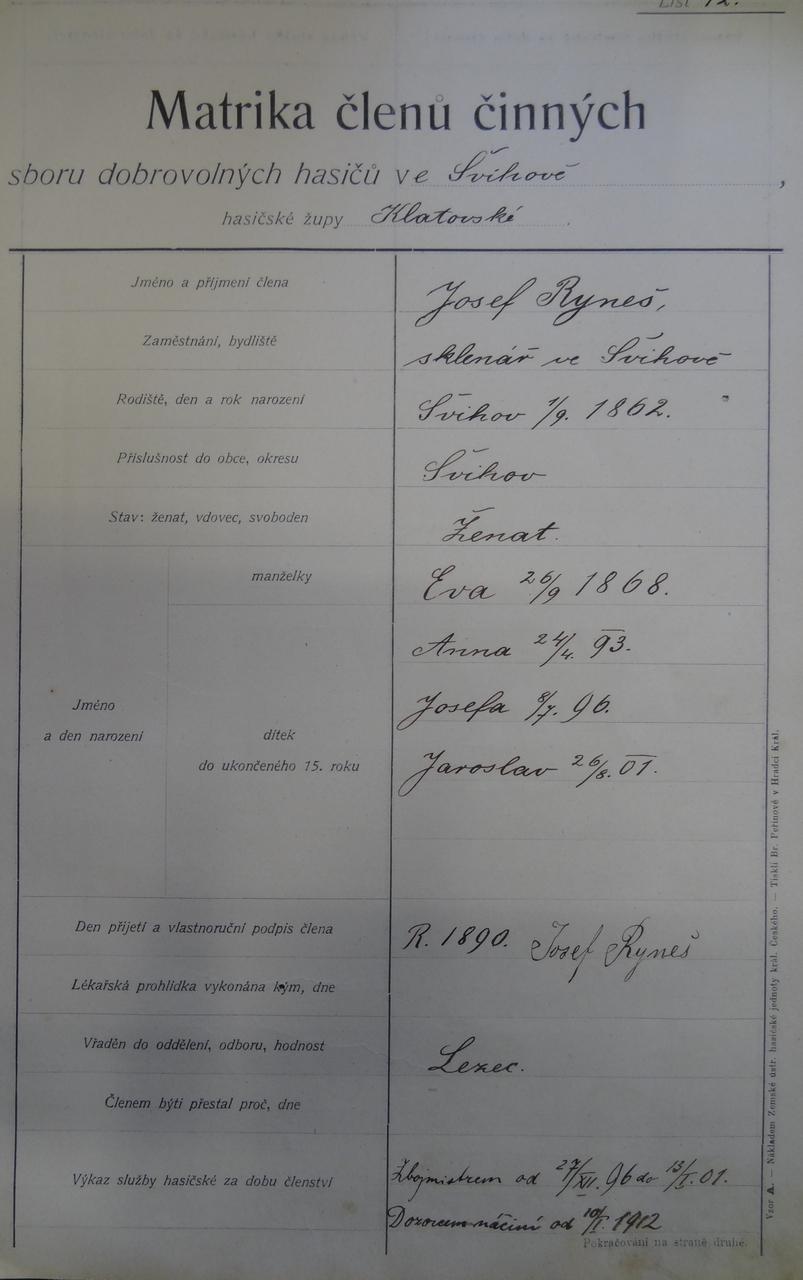 List 12.
Matrika členů činných
sboru dobrovolných hasičů ve Švihově,
hasičské župy Klatovské.
Jméno a příjmení člena Josef Ryneš,
Zaměstnání, bydliště sklenář ve Švihově
Rodiště, den a rok narození Švihov 1/9. 1862.
Příslušnost do obce, okresu Švihov
Stav: ženat, vdovec, svoboden Ženat.
manželky Eva 26/9 1868.
Anna 24/4. 93.
Jméno Josefa 8/7. 96.
a den narození dítek
do ukončeného 15. roku Jaroslav 26/8. 01.
Den přijetí a vlastnoruční podpis člena R. 1890. Josef Ryneš
Lékařská prohlídka vykonána kým, dne
Vřaděn do oddělení, odboru, hodnost Lezec.
Členem býti přestal proč, dne
Výkaz služby hasičské za dobu členství Zbojmistrem od 27/XII. 96 do 13/I. 01.
Dozorcem náčiní od 10/I. 1912
Pokračování na straně druhé.
Vzor A. — Nákladem Zemské ústř. hasičské jednoty král. Českého. — Tiskli Br. Peřinové v Hradci Král.